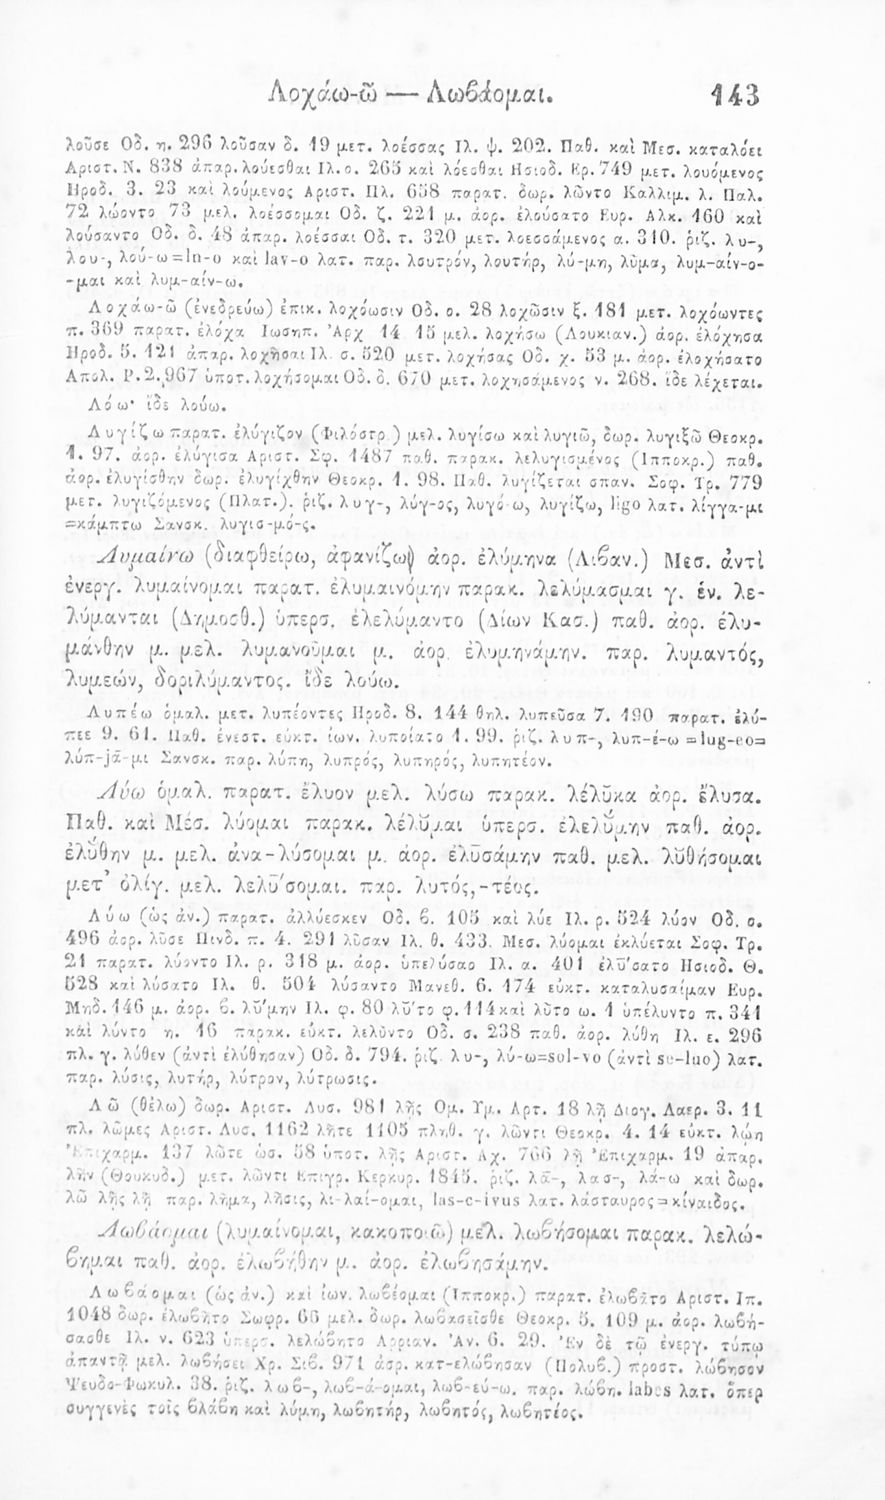 Λοχάω-ῶ — Λωβάομαι. 143
λοῦσε Οδ. η. 296 λοῦσαν δ. 49 μετ. λοέσσας Ιλ. ψ. 202. Παθ. καὶ Μεσ. καταλόει
Αριστ. Ν. 838 ἀπαρ. λούεσθαι Ιλ. ο. 265 καὶ λόεσθαι Ησιοδ. Ερ. 749 μετ. λουόμενος
Ηροδ. 3. 23 καὶ λούμενος Αριστ. Πλ. 658 παρατ. δωρ. λῶντο Καλλιμ. λ. Παλ.
72 λώοντο 73 μελ. λοέσσομαι Οδ. ζ. 221 μ. ἀορ. ἐλούσατο Ευρ. Αλκ. 160 καὶ
λούσαντο Οδ. δ. 48 ἀπαρ. λοέσσαι Οδ. τ. 320 μετ. λοεσσάμενος α. 310. ῥιζ. λυ-,
λου-, λού-ω=ln-o καὶ lav-o λατ. παρ. λουτρόν, λουτήρ, λύ-μη, λῦμα, λυμ-αίν-ο-
-μαι καὶ λυμ-αίν-ω.
Λοχάω-ῶ (ἐνεδρεύω) ἐπικ. λοχόωσιν Οδ. ο. 28 λοχῶσιν ξ. 181 μετ. λοχόωντες
π. 369 παρατ. ἐλόχα Ιωσηπ. Ἀρχ 14 15 μελ. λοχήσω (Λουκιαν.) ἀορ. ἐλόχησα
Ηροδ. 5. 121 ἀπαρ. λοχῆσαι Ιλ. σ. 520 μετ. λοχήσας Οδ. χ. 53 μ. ἀορ. ἐλοχήσατο
Απολ. Ρ. 2. 967 ὑποτ. λοχήσομαι Οδ. δ. 670 μετ. λοχησάμενος ν. 268. ἴδε λέχεται.
Λόω· ἴδε λούω.
Λυγίζω παρατ. ἐλύγιζον (Φιλόστρ.) μελ. λυγίσω καὶ λυγιῶ, δωρ. λυγιξῶ Θεοκρ.
1. 97. ἀορ. ἐλύγισα Αριστ. Σφ. 1487 παθ. παρακ. λελυγισμένος (Ιπποκρ.) παθ.
ἀορ. ἐλυγίσθην δωρ. ἐλυγίχθην Θεοκρ. 1. 98. Παθ. λυγίζεται σπαν. Σοφ. Τρ. 779
μετ. λυγιζόμενος (Πλατ.). ῥιζ. λυγ-, λύγ-ος, λυγό-ω, λυγίζω, ligo λατ. λίγγα-μι
=κάμπτω Σανσκ. λυγισ-μό-ς.
Λυμαίνω (διαφθείρω, ἀφανίζω) ἀορ. ἐλύμηνα (Λιβαν.) Μεσ. ἀντὶ
ἐνεργ. λυμαίνομαι παρατ. ἐλυμαινόμην παρακ. λελύμασμαι γ. ἑν. λε-
λύμανται (Δημοσθ.) ὑπερσ. ἐλελύμαντο (Δίων Κασ.) παθ. ἀορ. ἐλυ-
μάνθην μ. μελ. λυμανοῦμαι μ. ἀορ. ἐλυμηνάμην. παρ. λυμαντός,
λυμεών, δοριλύμαντος. ἴδε λούω.
Λυπέω ὁμαλ. μετ. λυπέοντες Ηροδ. 8. 144 θηλ. λυπεῦσα 7. 190 παρατ. ἐλύ-
πεε 9. 61. Παθ. ἐνεστ. εὐκτ. ἰων. λυποίατο 1. 99. ῥιζ. λυπ-, λυπ-έ-ω =lug-eo=
λύπ-jā-μι Σανσκ. παρ. λύπη, λυπρός, λυπηρός, λυπητέον.
Λύω ὁμαλ. παρατ. ἔλυον μελ. λύσω παρακ. λέλῠκα ἀορ. ἔλυσα.
Παθ. καὶ Μέσ. λύομαι παρακ. λέλῠμαι ὑπερσ. ἐλελῠ́μην παθ. ἀορ.
ἐλῠ́θην μ. μελ. ἀνα-λύσομαι μ. ἀορ. ἐλῡσάμην παθ. μελ. λῠθήσομαι
μετ' ὀλίγ. μελ. λελῡ́σομαι. παρ. λυτός,-τέος.
Λύω (ὡς ἀν.) παρατ. ἀλλύεσκεν Οδ. β. 105 καὶ λύε Ιλ. ρ. 524 λύον Οδ. ο.
496 ἀορ. λῦσε Πινδ. π. 4. 291 λῦσαν Ιλ. θ. 433. Μεσ. λύομαι ἐκλύεται Σοφ. Τρ.
21 παρατ. λύοντο Ιλ. ρ. 318 μ. ἀορ. ὑπελύσαο Ιλ. α. 401 ἐλῡ́σατο Ησιοδ. Θ.
528 καὶ λύσατο Ιλ. θ. 504 λύσαντο Μανεθ. 6. 174 εὐκτ. καταλυσαίμαν Ευρ.
Μηδ. 146 μ. ἀορ. β. λῡ́μην Ιλ. φ. 80 λῡ́το φ. 114 καὶ λῦτο ω. 1 ὑπέλυντο π. 341
καὶ λύντο η. 16 παρακ. εὐκτ. λελῦντο Οδ. σ. 238 παθ. ἀορ. λύθη Ιλ. ε. 296
πλ. γ. λύθεν (ἀντὶ ἐλύθησαν) Οδ. δ. 794. ῥιζ. λυ-, λύ-ω=sol-vo (ἀντὶ se-luo) λατ.
παρ. λύσις, λυτήρ, λύτρον, λύτρωσις.
Λῶ (θέλω) δωρ. Αριστ. Λυσ. 981 λῇς Ομ. Υμ. Αρτ. 18 λῇ Διογ. Λαερ. 3. 11
πλ. λῶμες Αριστ. Λυσ. 1162 λῆτε 1105 πληθ. γ. λῶντι Θεοκρ. 4. 14 εὐκτ. λῴη
Ἐπιχαρμ. 137 λῶτε ὡσ. 58 ὑποτ. λῇς Αριστ. Αχ. 766 λῇ Ἐπιχαρμ. 19 ἀπαρ.
λῆν (Θουκυδ.) μετ. λῶντι Επιγρ. Κερκυρ. 1845. ῥιζ. λᾱ-, λασ-, λά-ω καὶ δωρ.
λῶ λῇς λῇ παρ. λῆμα, λῆσις, λι-λαί-ομαι, las-c-ivus λατ. λάσταυρος=κίναιδος.
Λωβάομαι (λυμαίνομαι, κακοποιῶ) μέλ. λωβήσομαι παρακ. λελώ-
βημαι παθ. ἀορ. ἐλωβήθην μ. ἀορ. ἐλωβησάμην.
Λωβάομαι (ὡς ἀν.) καὶ ἰων. λωβέομαι (Ιπποκρ.) παρατ. ἐλωβᾶτο Αριστ. Ιπ.
1048 δωρ. ἐλωβῆτο Σωφρ. 66 μελ. δωρ. λωβασεῖσθε Θεοκρ. 5. 109 μ. ἀορ. λωβή-
σασθε Ιλ. ν. 623 ὑπερσ. λελώβητο Αρριαν. Ἀν. 6. 29. Ἐν δὲ τῷ ἐνεργ. τύπῳ
ἀπαντᾷ μελ. λωβήσει Χρ. Σιβ. 971 ἀορ. κατ-ελώβησαν (Πολυβ.) προστ. λώβησον
Ψευδο-Φωκυλ. 38. ῥιζ. λωβ-, λωβ-ά-ομαι, λωβ-εύ-ω. παρ. λώβη. labes λατ. ὅπερ
συγγενὲς τοῖς βλάβη καὶ λύμη, λωβητήρ, λωβητός, λωβητέος.